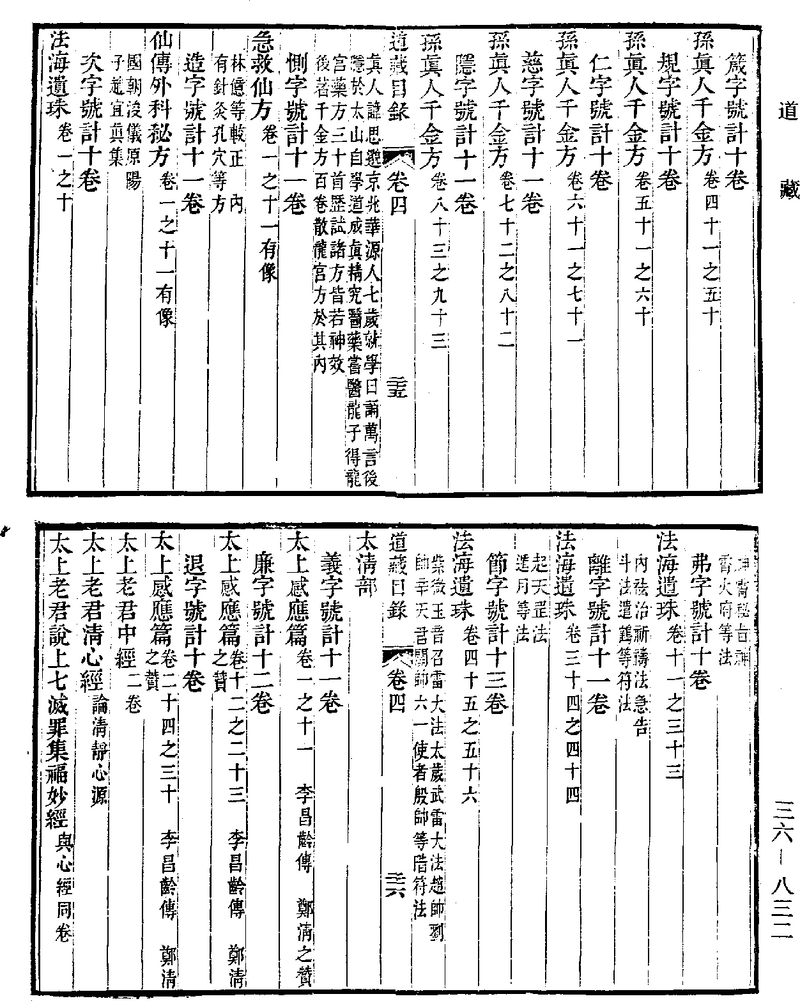 道藏
箴字號計十卷
孫眞人千金方 卷四十一之五十
規字號計十卷
孫眞人千金方 卷五十一之六十
仁字號計十卷
孫眞人千金方 卷六十一之七十一
慈字號計十一卷
孫眞人千金方 卷七十二之八十二
隱字號計十一卷
孫眞人千金方 卷八十三之九十三
道藏目錄 卷四 三五
眞人諱思邈京兆華源人七歲就學日誦萬言後
隱於太山自學道成眞精究醫藥嘗醫龍子得龍
宮藥方三十首歷試諸方皆若神效
後著千金方百卷散龍宮方於其內
惻字號計十一卷
急救仙方 卷一之十一有像
林億等較正 內
有針灸孔穴等方
造字號計十一卷
仙傳外科秘方 卷一之十一有像
國朝浚儀原陽
子趙宜眞集
次字號計十卷
法海遺珠 卷一之十
雷火府等法
弗字號計十卷
法海遺珠 卷十一之三十三
內祛治祈禱法急告
斗法遣鶴等符法
離字號計十一卷
法海遺珠 卷三十四之四十四
起天罡法
遁月等法
節字號計十三卷
法海遺珠 卷四十五之五十六
紫微玉音召雷大法太歲武雷大法趙帥劉
帥辛天君關帥六一使者殷帥等階符法
道藏目錄 卷四 三六
太清部
義字號計十一卷
太上感應篇 卷一之十一 李昌齡傳 鄭清之贊
廉字號計十二卷
太上感應篇 卷十二之二十三 李昌齡傳 鄭清
之贊
退字號計十卷
太上感應篇 卷二十四之三十 李昌齡傳 鄭清
之贊
太上老君中經 二卷
太上老君清心經 論清靜心源
太上老君說上七滅罪集福妙經 與心經同卷
三六—八三二